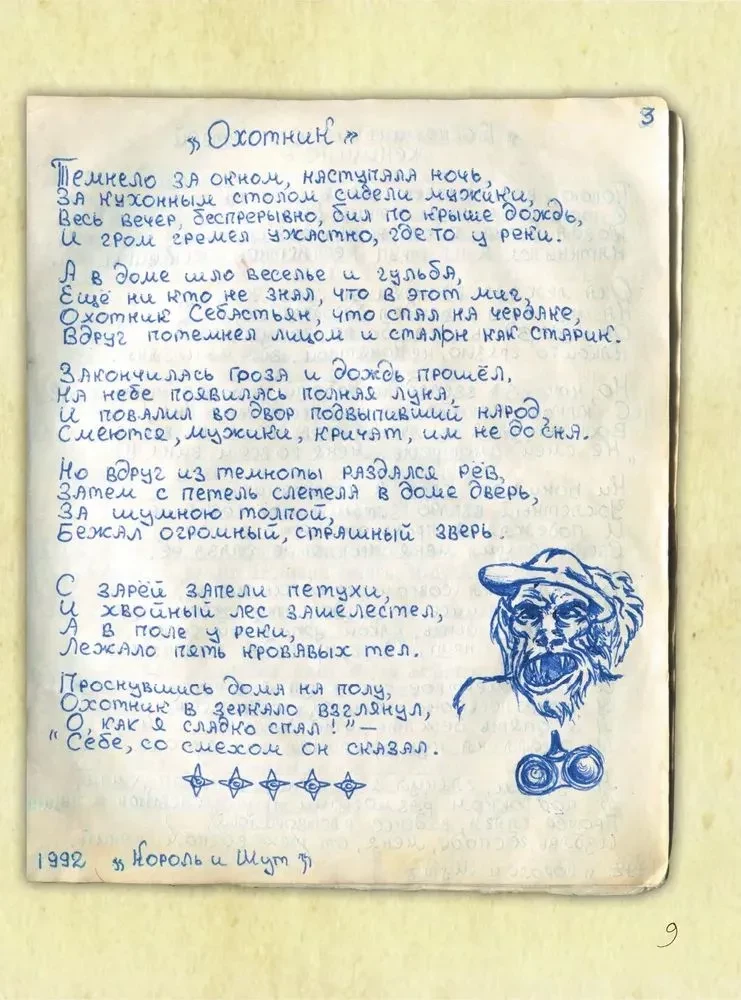 3
„Охотник"
Темнело за окном, наступала ночь,
За кухонным столом сидели мужики,
Весь вечер, беспрерывно, бил по крыше дождь,
И гром гремел ужастно, где то у реки.
А в доме шло веселье и гульба,
Ещё ни кто не знал, что в этот миг,
Охотник Себастьян, что спал на чердаке,
Вдруг потемнел лицом и стал он как старик.
Закончилась гроза и дождь прошёл,
На небе появилась полная луна,
И повалил во двор подвыпивший народ,
Смеются, мужики, кричат, им не до сна.
Но вдруг из темноты раздался рёв,
Затем с петель слетела в доме дверь,
За шумною толпой,
Бежал огромный, страшный зверь.
С зарёй запели петухи,
И хвойный лес зашелестел,
А в поле у реки,
Лежало пять кровавых тел.
Проснувшись дома на полу,
Охотник в зеркало взглянул,
О, как я сладко спал!" —
"Себе, со смехом он сказал.
1992 „Король и Шут"
9